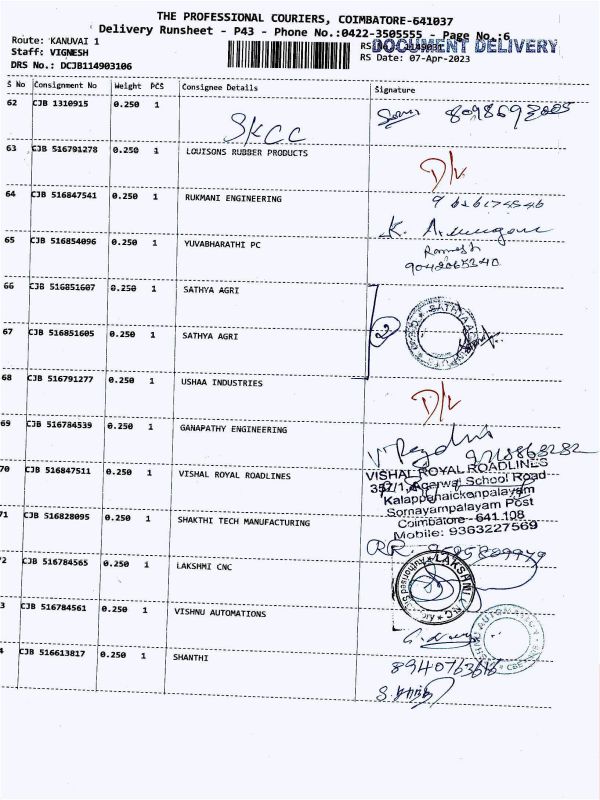 THE PROFESSIONAL COURIERS, COIMBATORE-641037
Delivery Runsheet - P43 - Phone No.:0422-3505555 - Page No.:6
Route: KANUVAI 1
Staff: VIGNESH
DRS No.: DCJB114903106
DOCUMENT DELIVERY
RS Date: 07-Apr-2023
S No Consignment No Weight PCS Consignee Details Signature
62 CJB 1310915 0.250 1 SKCC
63 CJB 516791278 0.250 1 LOUISONS RUBBER PRODUCTS D/L
64 CJB 516847541 0.250 1 RUKMANI ENGINEERING
65 CJB 516854096 0.250 1 YUVABHARATHI PC Ramesh
9042065340
66 CJB 516851607 0.250 1 SATHYA AGRI
2
67 CJB 516851605 0.250 1 SATHYA AGRI
68 CJB 516791277 0.250 1 USHAA INDUSTRIES D/L
69 CJB 516784539 0.250 1 GANAPATHY ENGINEERING
70 CJB 516847511 0.250 1 VISHAL ROYAL ROADLINES
VISHAL ROYAL ROADLINES
352/1, Agarwal School Road
Kalappanaickenpalayam
Somayampalayam Post
Coimbatore - 641 108
Mobile: 9363227569
71 CJB 516828095 0.250 1 SHAKTHI TECH MANUFACTURING
2 CJB 516784565 0.250 1 LAKSHMI CNC
LAKSHMI CNC
3 CJB 516784561 0.250 1 VISHNU AUTOMATIONS
4 CJB 516613817 0.250 1 SHANTHI
8940763616